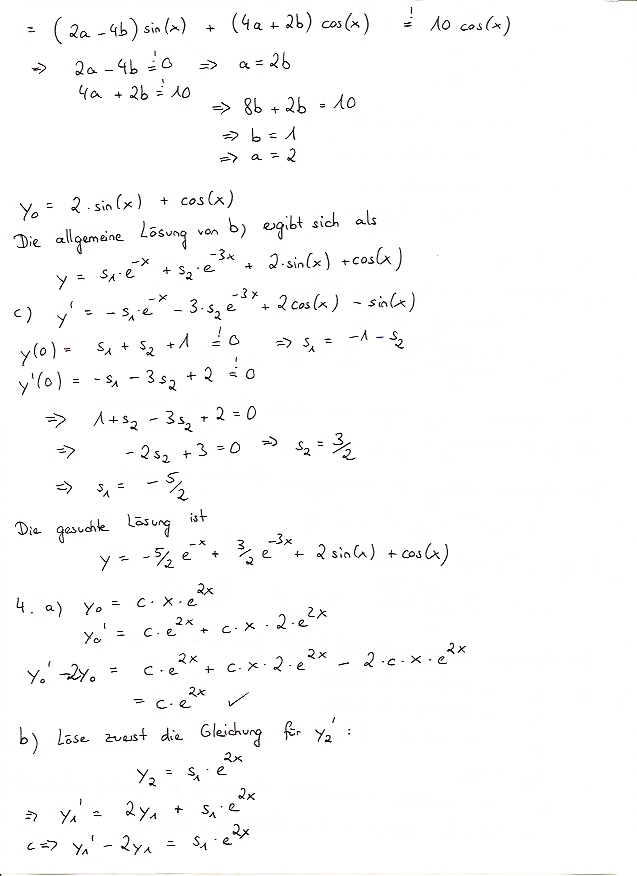 = (2a - 4b) sin(x) + (4a + 2b) cos(x) =! 10 cos(x)
=> 2a - 4b =! 0 => a = 2b
4a + 2b =! 10
=> 8b + 2b = 10
=> b = 1
=> a = 2
y₀ = 2·sin(x) + cos(x)
Die allgemeine Lösung von b) ergibt sich als
y = s₁·e^-x + s₂·e^-3x + 2·sin(x) + cos(x)
c) y' = -s₁·e^-x - 3·s₂e^-3x + 2cos(x) - sin(x)
y(0) = s₁ + s₂ + 1 =! 0 => s₁ = -1 - s₂
y'(0) = -s₁ - 3s₂ + 2 =! 0
=> 1 + s₂ - 3s₂ + 2 = 0
=> -2s₂ + 3 = 0 => s₂ = 3/2
=> s₁ = -5/2
Die gesuchte Lösung ist
y = -5/2 e^-x + 3/2 e^-3x + 2 sin(x) + cos(x)
4. a) y₀ = c · x · e^2x
y₀' = c·e^2x + c·x·2·e^2x
y₀' - 2y₀ = c·e^2x + c·x·2·e^2x - 2·c·x·e^2x
= c·e^2x ✓
b) Löse zuerst die Gleichung für y₂' :
y₂ = s₁·e^2x
=> y₁' = 2y₁ + s₁·e^2x
<=> y₁' - 2y₁ = s₁·e^2x